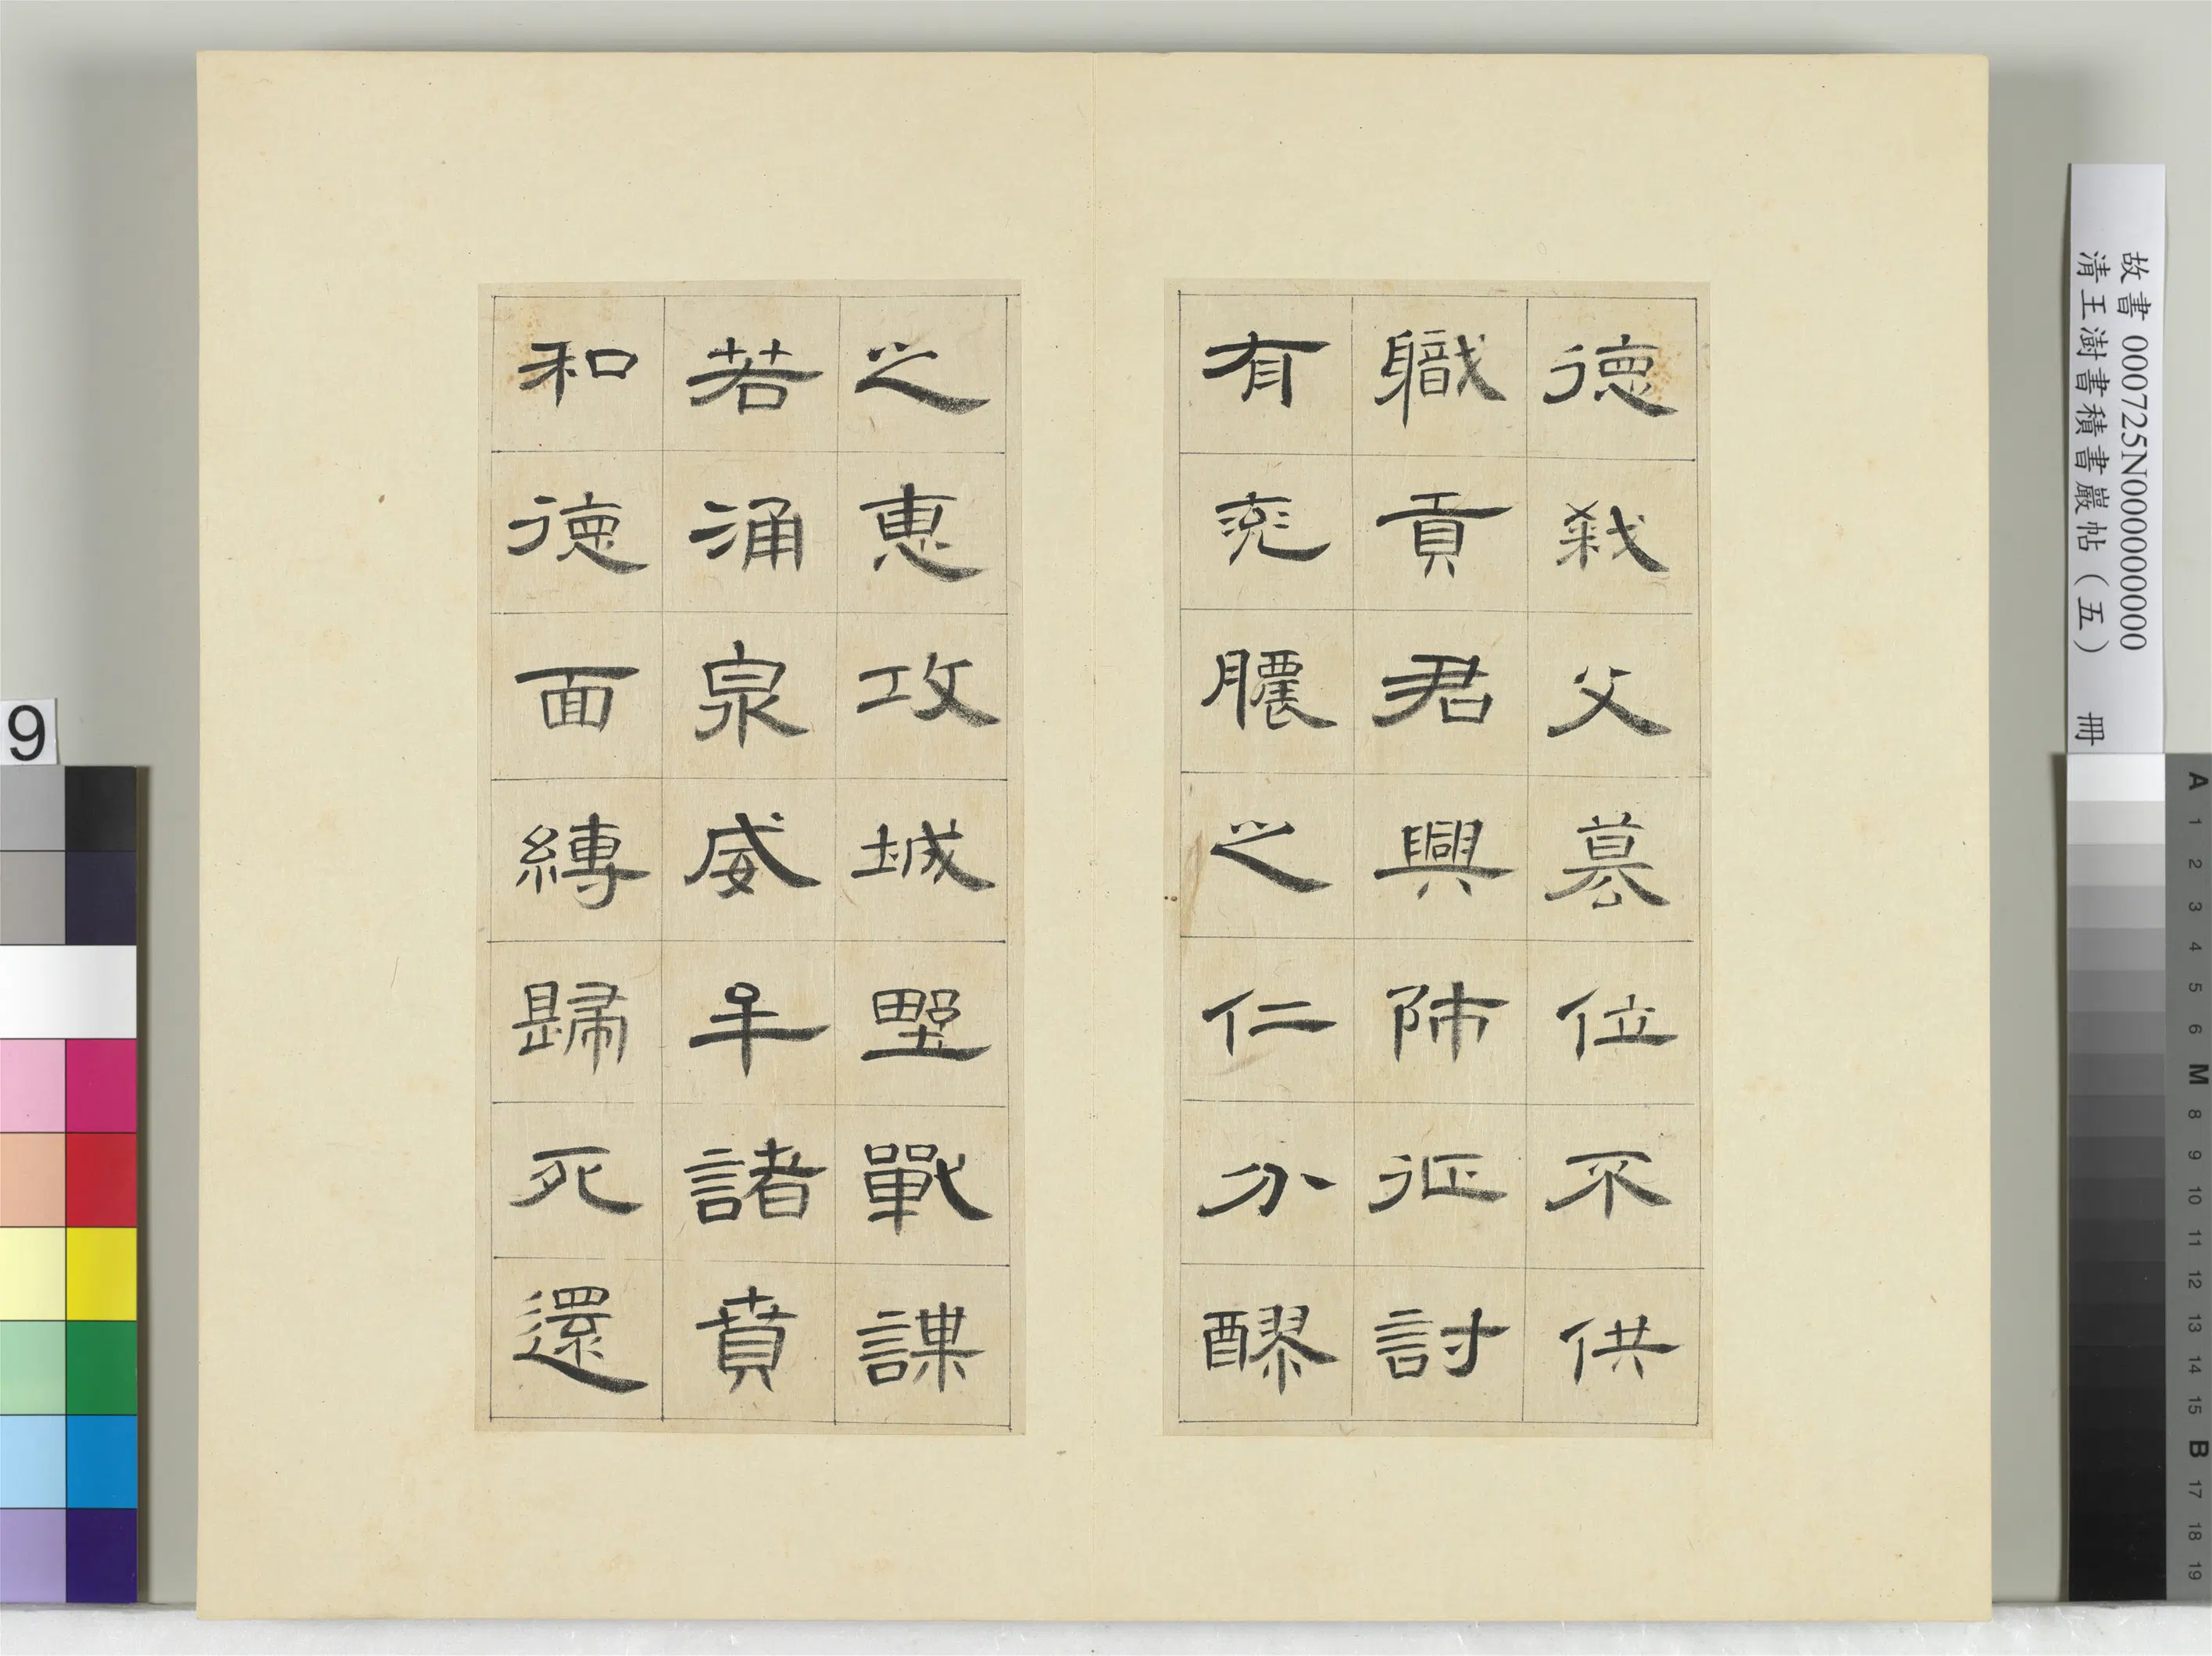 德弒父篡位不供
職貢君興師征討
有兖膿之仁分醪
之惠攻城野戰謀
若涌泉威牟諸賁
和德面縛歸死還
故書 000725N000000000
清王澍書積書巖帖（五） 冊
9
A 1 2 3 4 5 6 M 8 9 10 11 12 13 14 15 B 17 18 19